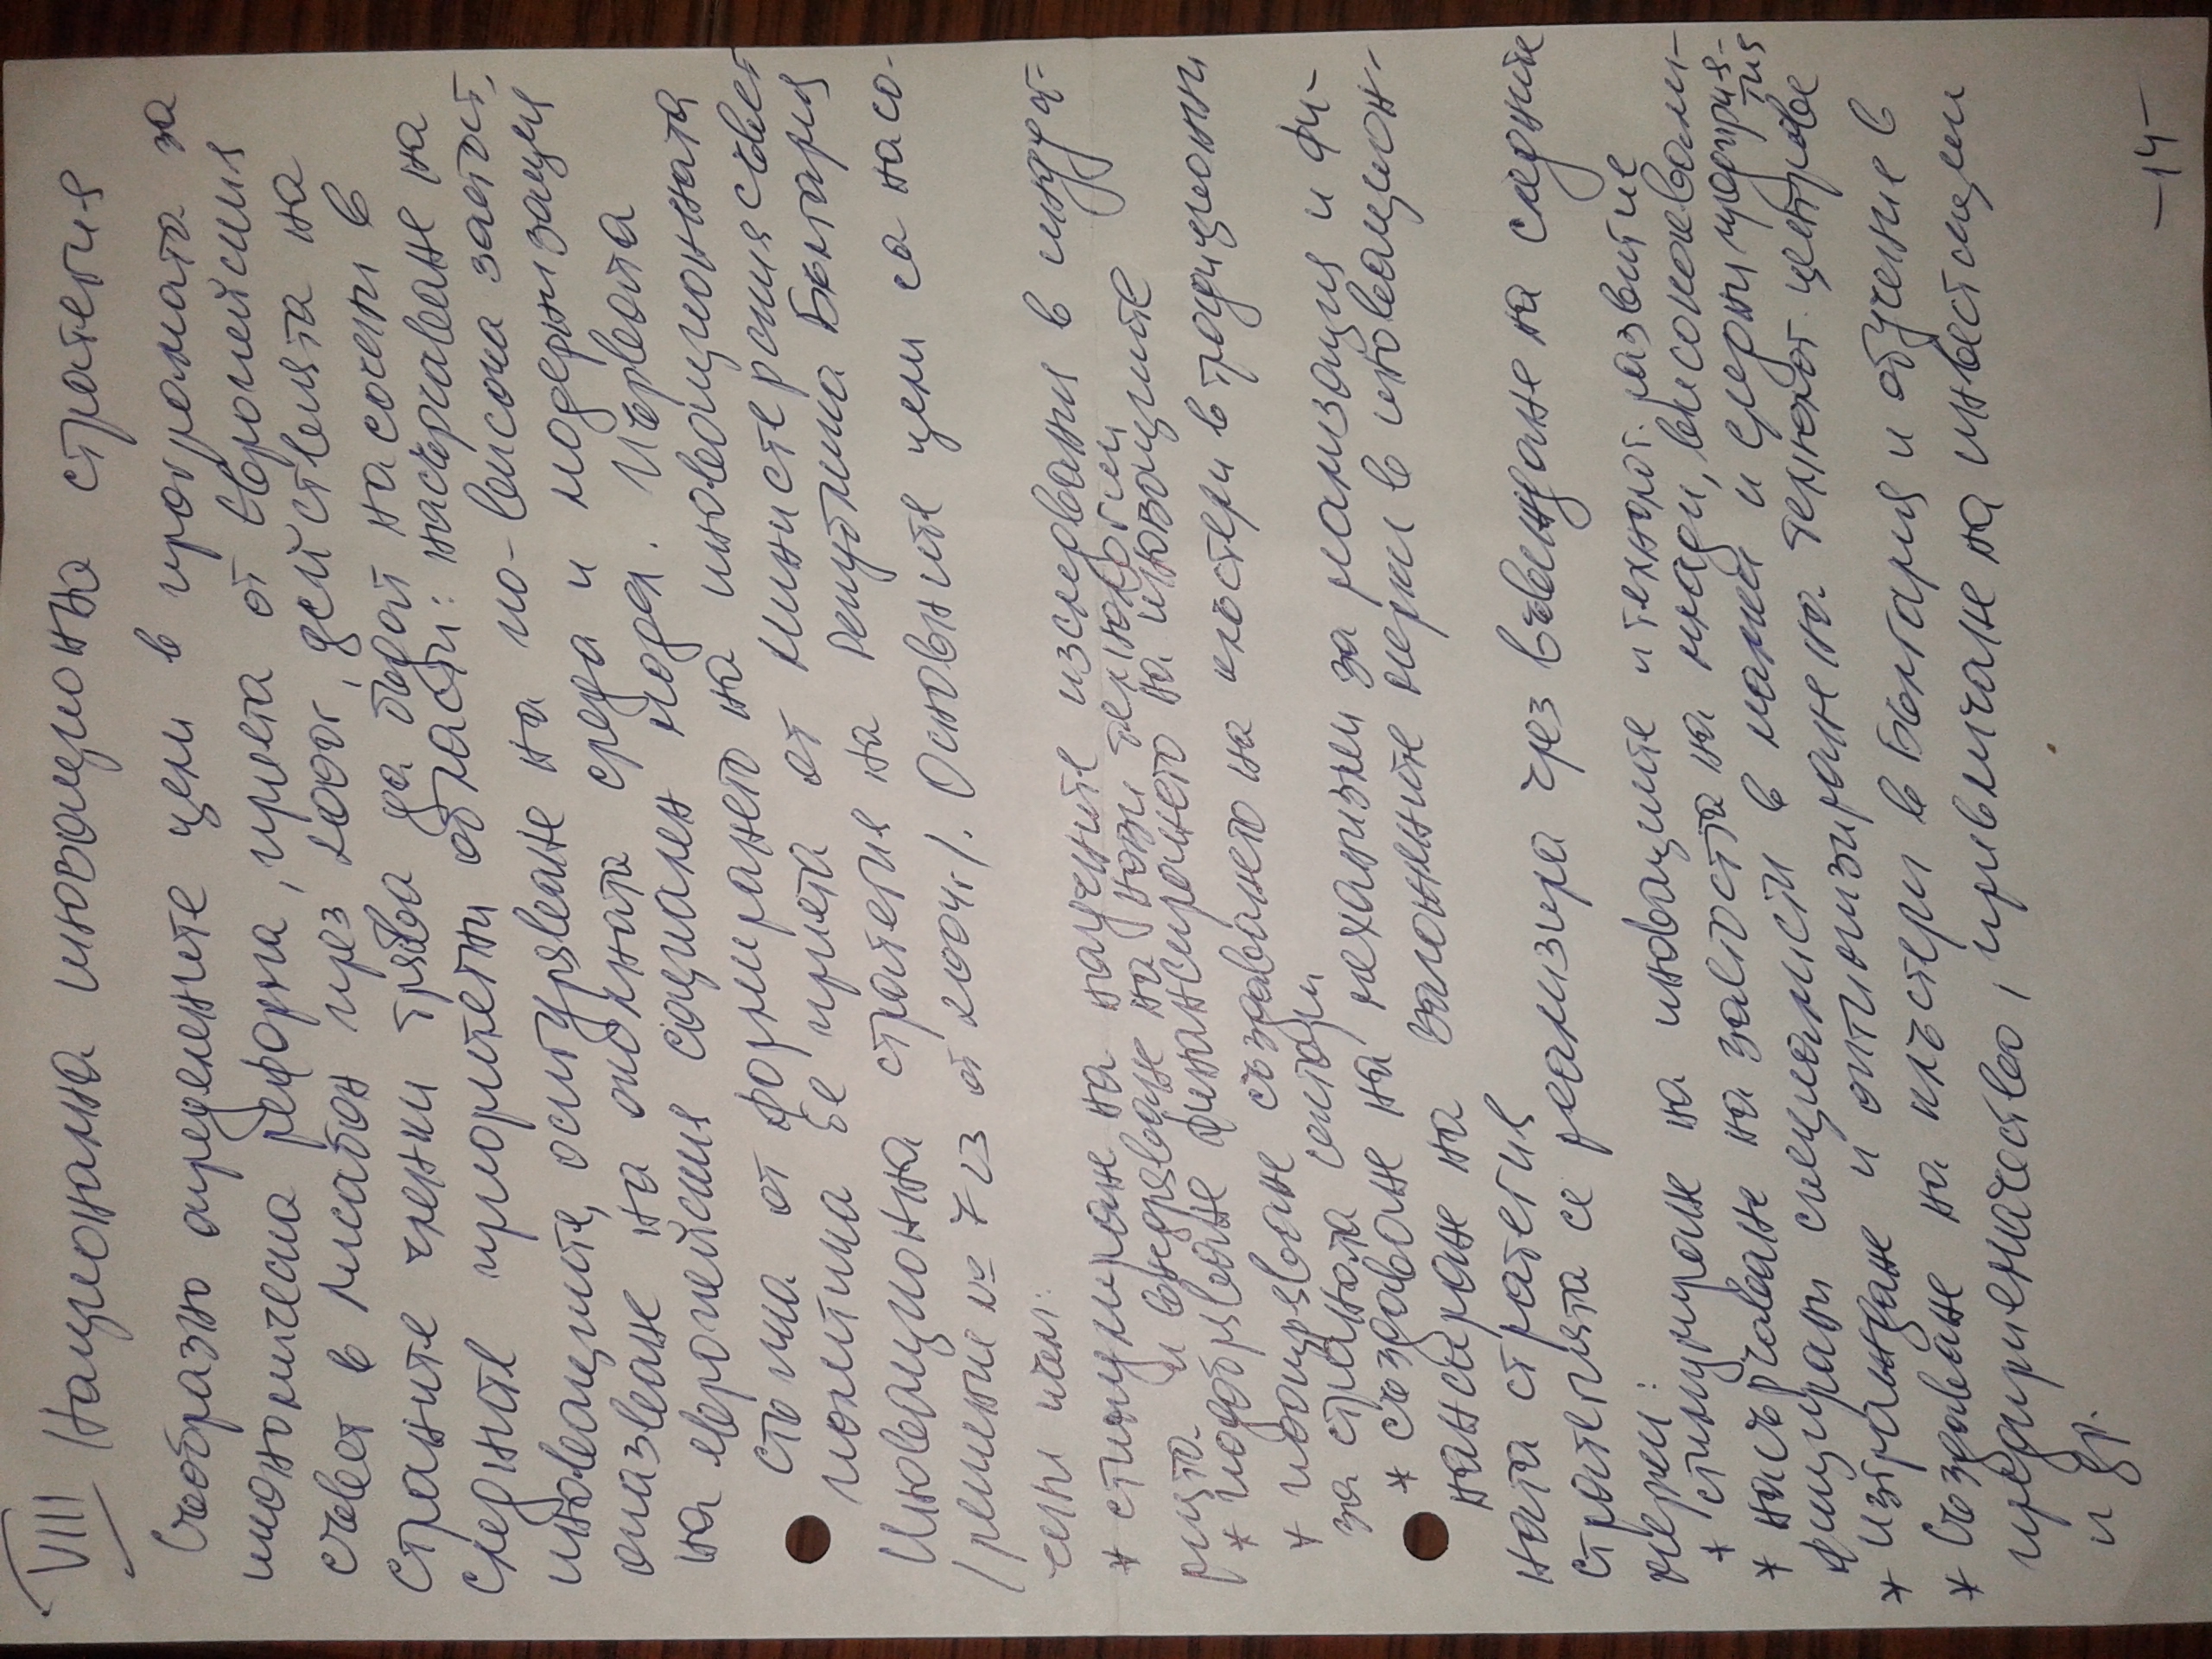 VIII Национална иновационна стратегия
Съобразно определените цели в програмата за
икономическа реформа, приета от Европейския
съвет в Лисабон през 2000г, действията на
страните членки трябва да бъдат насочени в
следните приоритетни области: насърчаване на
иновациите, осигуряване на по-висока заетост,
опазване на околната среда и модернизация
на европейския социален модел. Първата
стъпка от формирането на иновационната
политика бе приета от министерския съвет
Иновационна стратегия на република България
/решение № 723 от 2004г/. Основните цели са насо-
чени към:
* стимулиране на научните изследвания в индуст-
рията и внедряване на нови технологии
* подобряване финансирането на иновациите
* поощряване създаването на клъстери в традиционни
за страната сектори
* създаване на механизми за реализация и фи-
нансиране на заложените мерки в иновацион-
ната стратегия
стратегията се реализира чрез въвеждане на следните
мерки:
* стимулиране на иновациите и технолог. развитие
* насърчаване на заетостта на млади, висококвали-
фицирани специалисти в малки и средни предприя-
тия
* изграждане и оптимизиране на технолог. центрове
* създаване на клъстери в България и обучение в
предприемачество, привличане на инвестиции
и др.
-14-